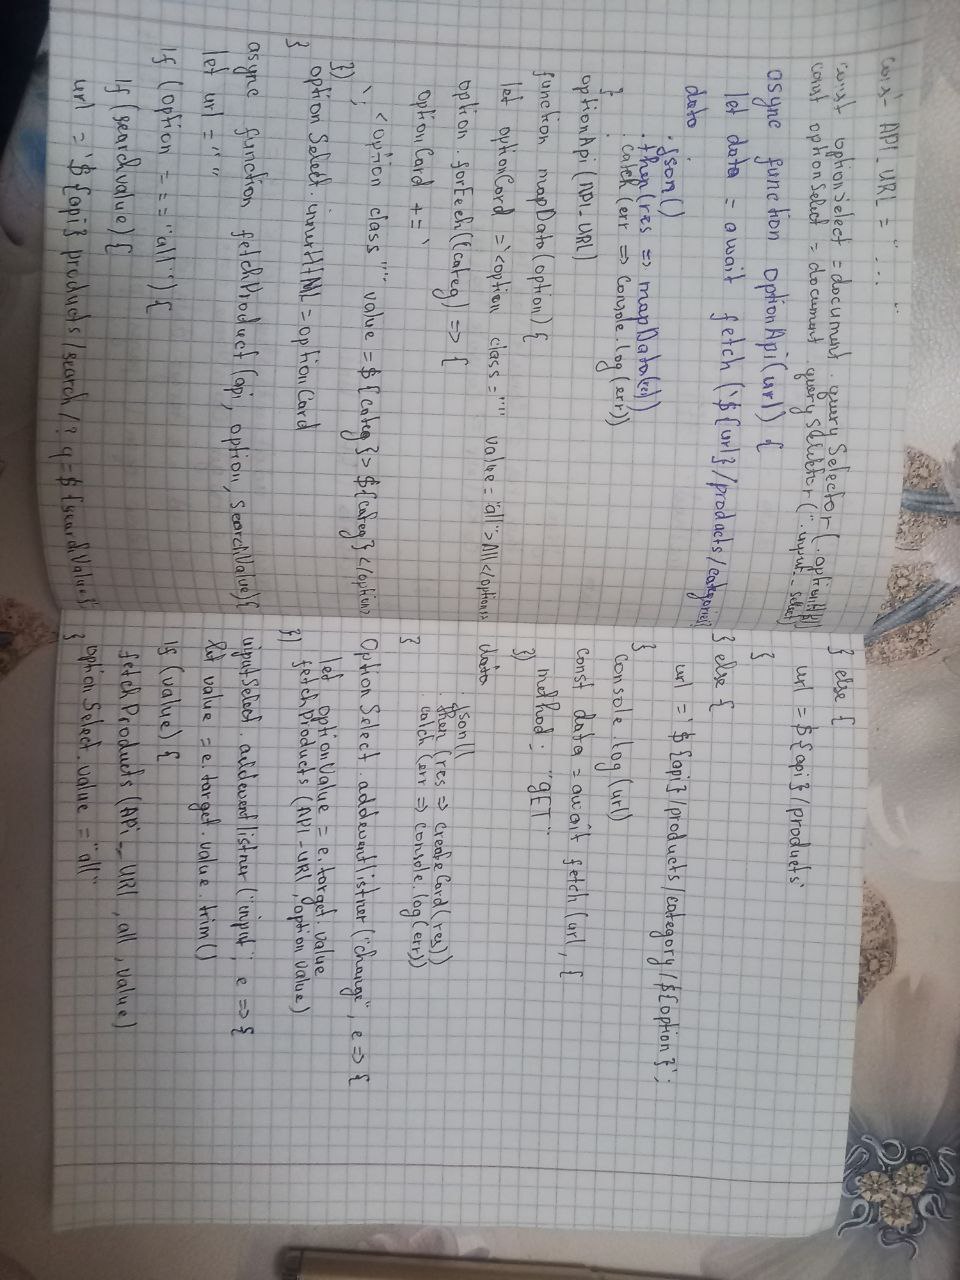 const API_URL = "...."
const optionSelect = document.querySelector(".option
const optionSelect = document.querySelector(".input-select
async function optionApi(url) {
let data = await fetch(`${url}/products/categorie
data
.json()
.then(res => mapData(res))
.catch(err => console.log(err))
}
optionApi(API_URL)
function mapData(option) {
let optionCard = `<option class="" value="all">All</option>`
option.forEach((categ) => {
optionCard += `
<option class"" value=${categ}>${categ}</option>
`;
})
optionSelect.innerHTML = optionCard
}
async function fetchProduct(api, option, searchValue) {
let url = ""
If (option === "all") {
If (searchvalue) {
url = `${api} products/search/?q=${searchValue}`
} else {
url = ${api}/products`
}
} else {
url = `${api}/products/category/${option}`;
}
console.log(url)
const data = await fetch(url, {
method: "gET"
})
data
.json()
.then(res => createCard(res))
.catch(err => console.log(err))
}
OptionSelect.addeventlistner("change", e => {
let optionValue = e.target.value
fetchProducts(API_URL, option value)
})
inputSelect.addeventlistner("input", e => {
let value = e.target.value.trim()
If (value) {
fetchProducts(API_URL, all, value)
optionSelect.value = "all"
}